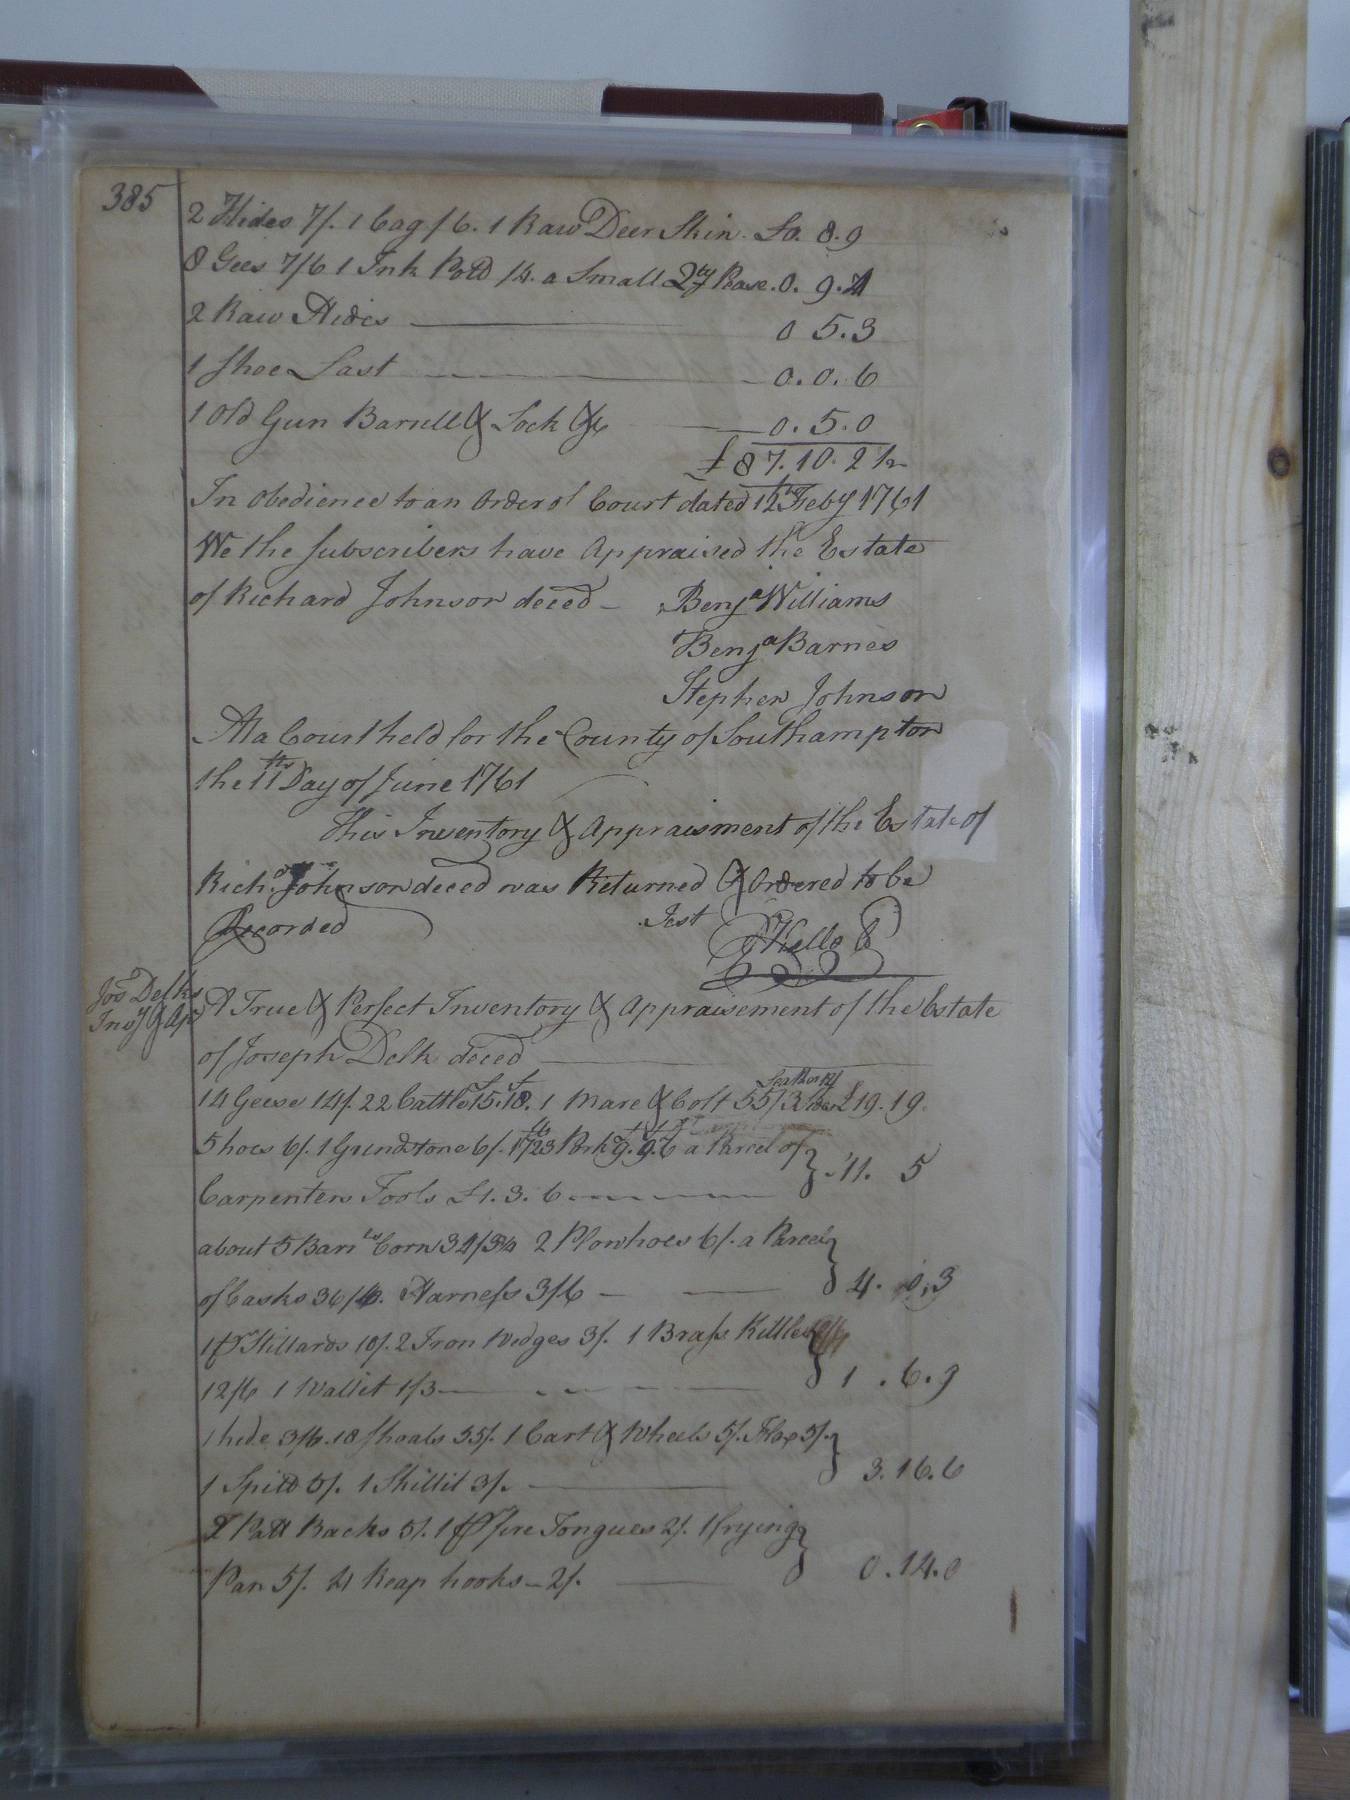 385
2 Hides 7/. 1 Cag 1/6. 1 Raw Deer Skin. £0. 8. 9
8 Gees 7/6 1 Ink Pott /4. a Small Qty Pease. 0. 9. 4
2 Raw Hides 0 5. 3
1 Shoe Last 0. 0. 6
1 Old Gun Barrell & Lock &c 0. 5. 0
£ 87. 10. 2 1/2
In Obedience to an Order of Court dated 12th Feby 1761
We the Subscribers have Appraised the Estate
of Richard Johnson deced
Benja Williams
Benja Barnes
Stephen Johnson
At a Court held for the County of Southampton
the 11th Day of June 1761
This Inventory & Appraisment of the Estate of
Richd Johnson deced was Returned & Ordered to be
Recorded Test
Kello C
Jos Delks
Invy & Ap
A True & Perfect Inventory & Appraisement of the Estate
of Joseph Delk deced
14 Geese 14/. 22 Cattle £15. 18. 1 Mare & Colt 55/ £19. 19.
5 hoes 6/. 1 Grindstone 6/. Pork 9. 9. 6 a Parcel of
Carpenters Tools £1. 3. 6 } 11. 5
about 5 Barrls Corn 2 Plowhoes 6/. a Parcel
of Casks 36/ Harness 3/6 } 4. 0. 3
1 pr Stillards 10/. 2 Iron Wedges 3/. 1 Brass Kittle
12/6 1 Wallet 1/3 } 1. 6. 9
1 hide 3/6. 18 Shoats 55/. 1 Cart & Wheels 5/. Flax 5/.
1 Spitt 5/. 1 Skillit 3/. } 3. 16. 6
2 Pott Racks 5/. 1 pr Fire Tongues 2/. 1 frying
Pan 5/. 4 Reap hooks 2/. } 0. 14. 0